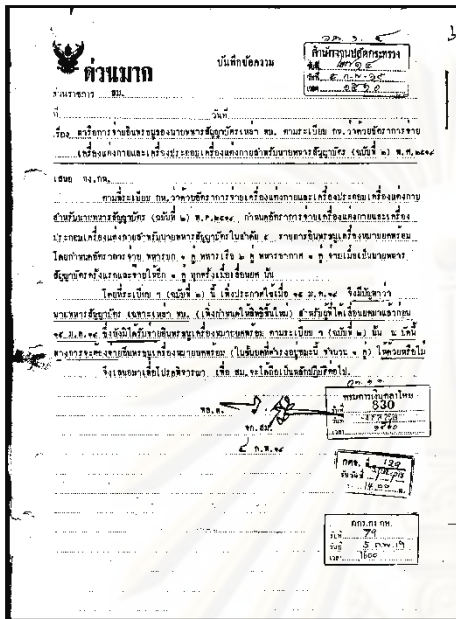 ด่วนมาก
บันทึกข้อความ
สำนักงานปลัดกระทรวง
ส่วนราชการ สม.
ที่ วันที่
เรื่อง หารือการจ่ายอินทรธนูของนายทหารสัญญาบัตรเหล่า ทบ. ตามระเบียบ กห.ว่าด้วยอัตราการจ่าย
เครื่องแต่งกายและเครื่องประกอบเครื่องแต่งกายสำหรับนายทหารสัญญาบัตร (ฉบับที่ ๒) พ.ศ.๒๕๑๔
เสนอ กง.กห.
ตามที่ระเบียบ กห.ว่าด้วยอัตราการจ่ายเครื่องแต่งกายและเครื่องประกอบเครื่องแต่งกาย
สำหรับนายทหารสัญญาบัตร (ฉบับที่ ๒) พ.ศ.๒๕๑๔ กำหนดอัตราการจ่ายเครื่องแต่งกายและเครื่อง
ประกอบเครื่องแต่งกายสำหรับนายทหารสัญญาบัตรในลำดับ ๕ รายการอินทรธนูเครื่องหมายยศพร้อม
โดยกำหนดอัตราการจ่าย ทหารบก ๑ คู่ ทหารเรือ ๒ คู่ ทหารอากาศ ๑ คู่ จ่ายเมื่อเป็นนายทหาร
สัญญาบัตรครั้งแรกและจ่ายให้อีก ๑ คู่ ทุกครั้งเมื่อเลื่อนยศ นั้น
โดยที่ระเบียบ ฯ (ฉบับที่ ๒) นี้ เพิ่งประกาศใช้เมื่อ ๑๔ ม.ค.๑๔ จึงมีปัญหาว่า
นายทหารสัญญาบัตร (เฉพาะเหล่า ทบ. เพิ่งกำหนดให้สิทธิขึ้นใหม่) สำหรับผู้ที่ได้เลื่อนยศมาแล้วก่อน
ซึ่งยังมิได้รับจ่ายอินทรธนูเครื่องหมายยศพร้อม ตามระเบียบ ฯ (ฉบับที่ ๒) นั้น
ทางการจะต้องจ่ายอินทรธนูเครื่องหมายยศพร้อม (ในชั้นยศที่ดำรงอยู่ขณะนี้ จำนวน ๑ คู่) ให้ด้วยหรือไม่
จึงเสนอมาเพื่อโปรดพิจารณา เพื่อ สม.จะได้ถือเป็นหลักปฏิบัติต่อไป.
พล.ต.
จก.สม.
ก.พ.๑๔
กรมการเงินกลาโหม
830
14.00
79
5 ก.พ. 14
1600